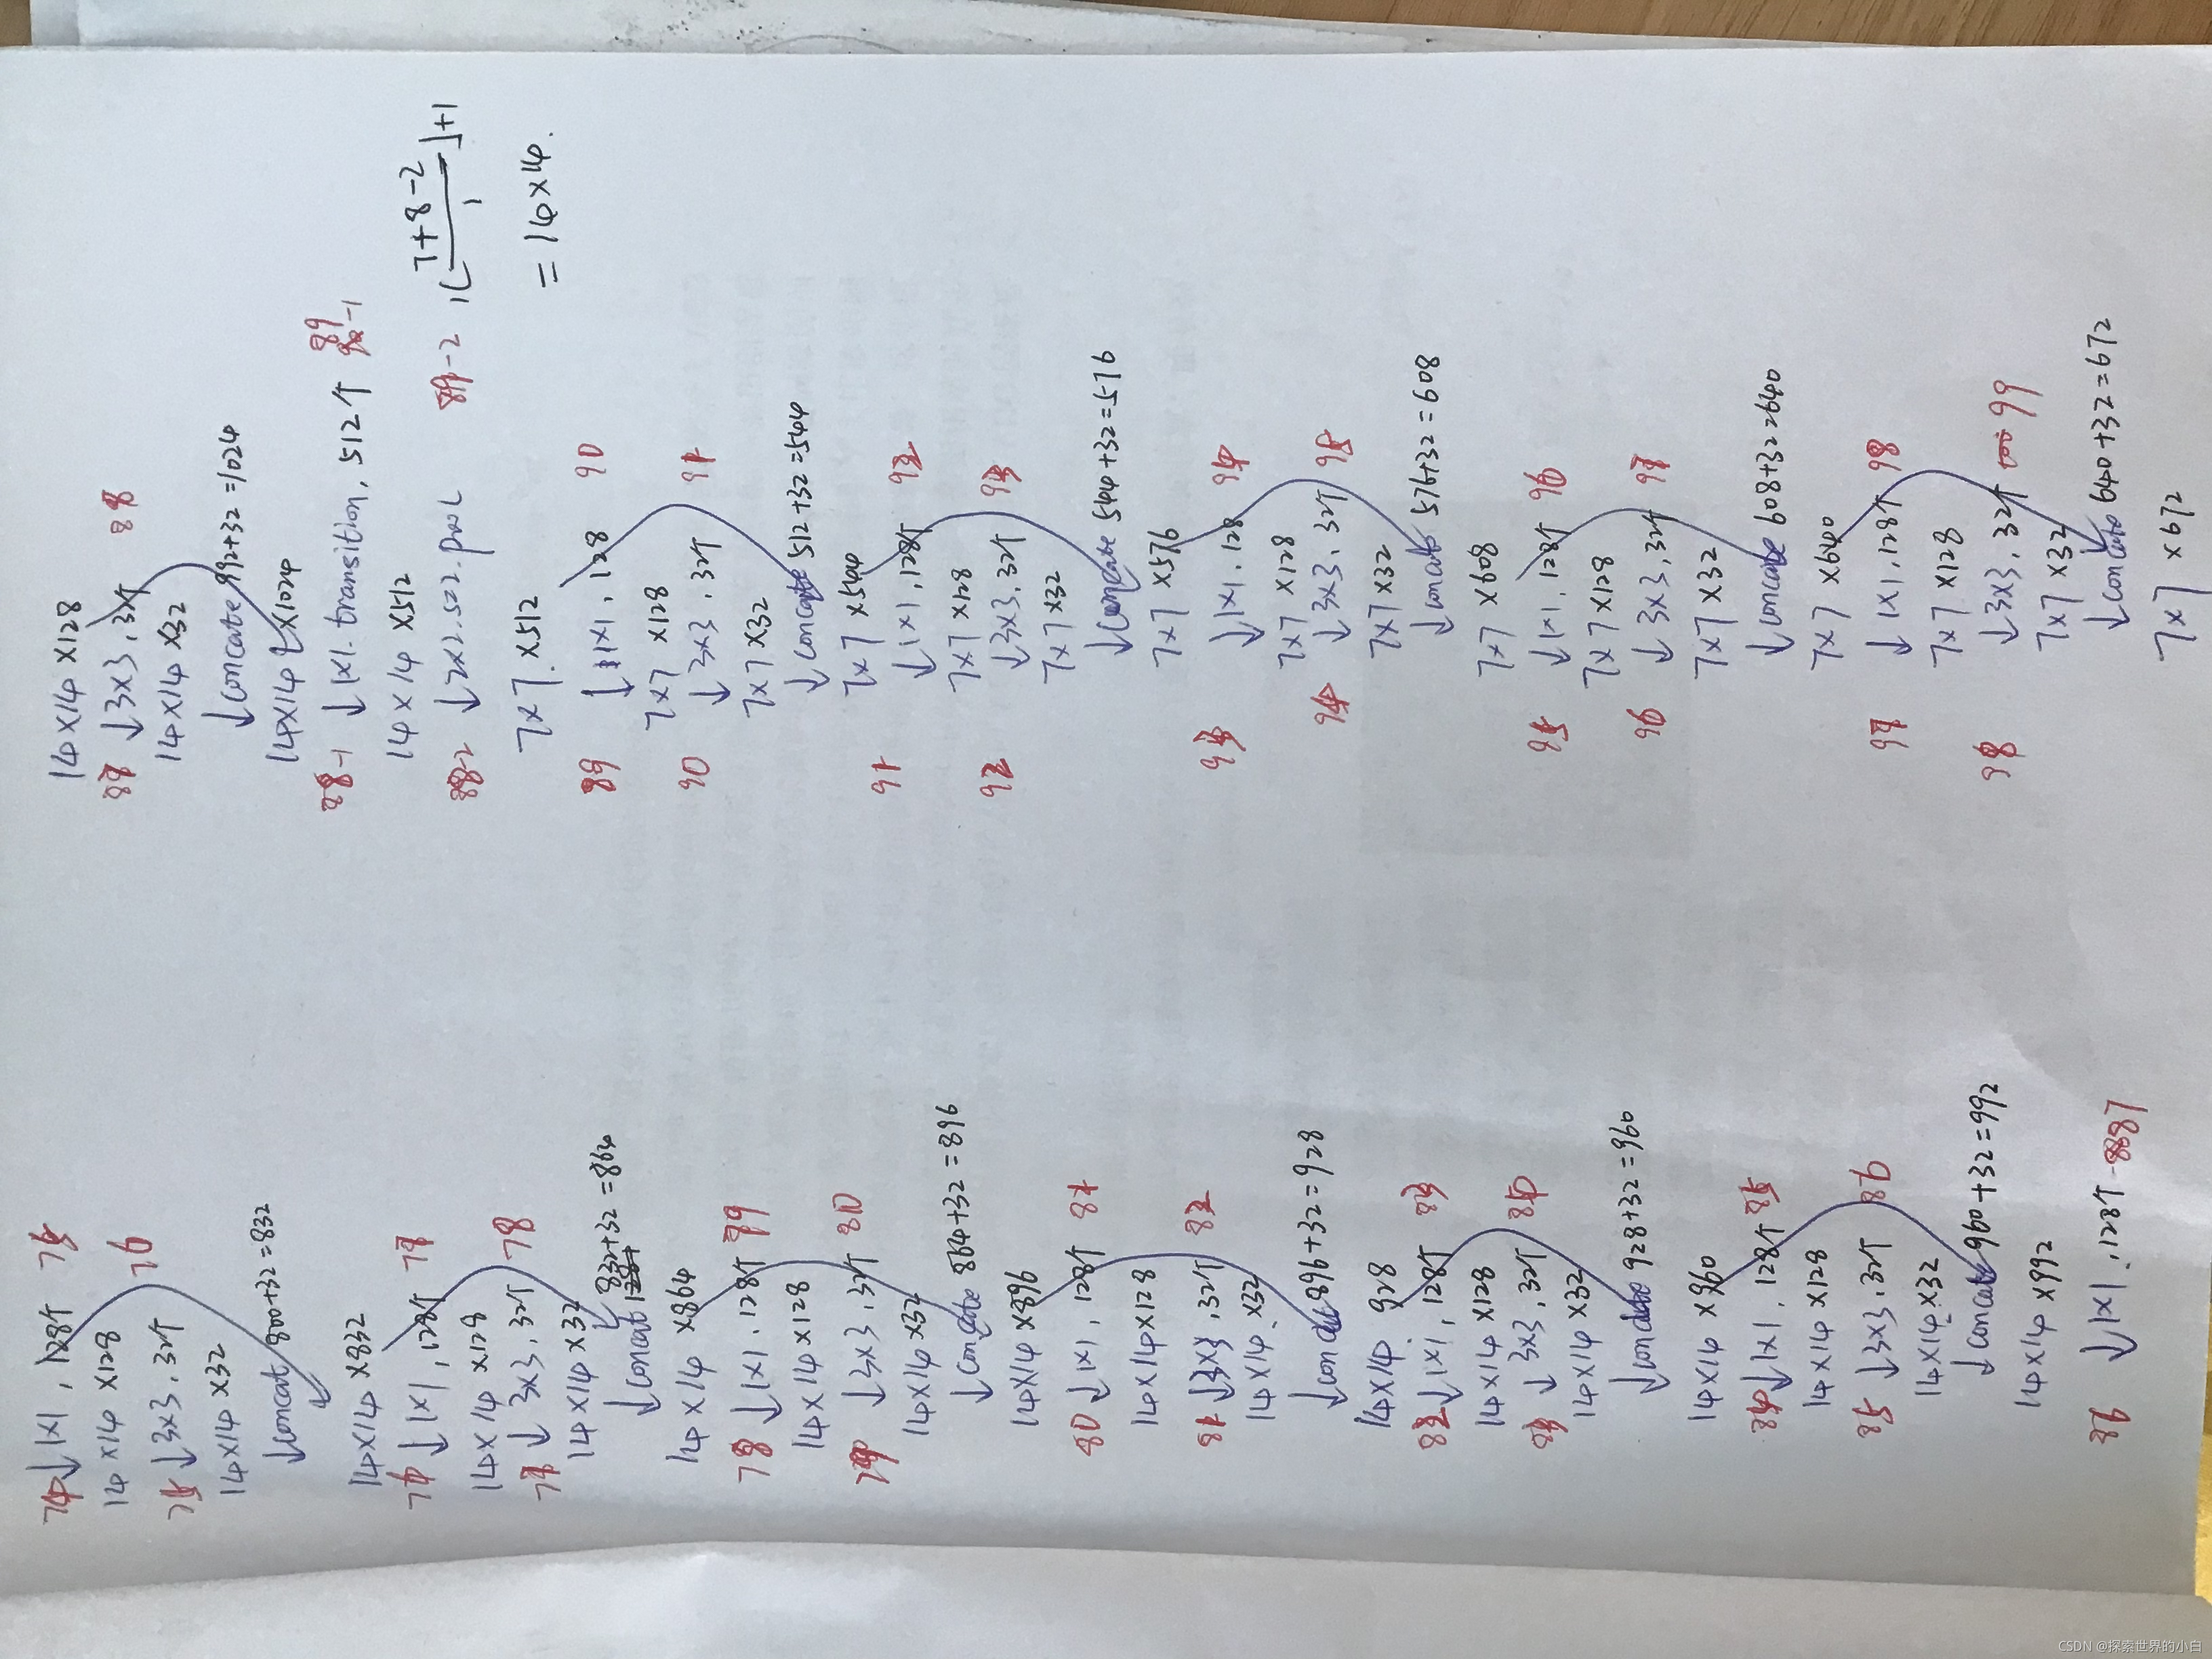 74 ↓1×1, 128个 75
14×14×128 76
75 ↓3×3, 32个
14×14×32
↓concat 800+32=832
14×14×832
76 ↓1×1, 128个 77
14×14×128
77 ↓3×3, 32个 78
14×14×32
↓concat 832+32=864
14×14×864
78 ↓1×1, 128个 79
14×14×128
79 ↓3×3, 32个 80
14×14×32
↓concate 864+32=896
14×14×896
80 ↓1×1, 128个 81
14×14×128
81 ↓3×3, 32个 82
14×14×32
↓concate 896+32=928
14×14×928
82 ↓1×1, 128个 83
14×14×128
83 ↓3×3, 32个 84
14×14×32
↓concate 928+32=960
14×14×960
84 ↓1×1, 128个 85
14×14×128
85 ↓3×3, 32个 86
14×14×32
↓concate 960+32=992
14×14×992
86 ↓1×1, 128个 87
14×14×128
87 ↓3×3, 32个 88
14×14×32
↓concate 992+32=1024
14×14×1024
88-1 ↓1×1.transition, 512个 89-1
14×14×512
88-2 ↓2×2.s=2.pool 89-2
7×7×512
89 ↓1×1, 128 90
7×7×128
90 ↓3×3, 32个 91
7×7×32
↓concate 512+32=544
7×7×544
91 ↓1×1, 128个 92
7×7×128
92 ↓3×3, 32个 93
7×7×32
↓concate 544+32=576
7×7×576
93 ↓1×1, 128 94
7×7×128
94 ↓3×3, 32个 95
7×7×32
↓concate 576+32=608
7×7×608
95 ↓1×1, 128个 96
7×7×128
96 ↓3×3, 32个 97
7×7×32
↓concate 608+32=640
7×7×640
97 ↓1×1, 128个 98
7×7×128
98 ↓3×3, 32个 99
7×7×32
↓concate 640+32=672
7×7×672
7+8-2
1
+1
=14×14.
CSDN @探索世界的小白